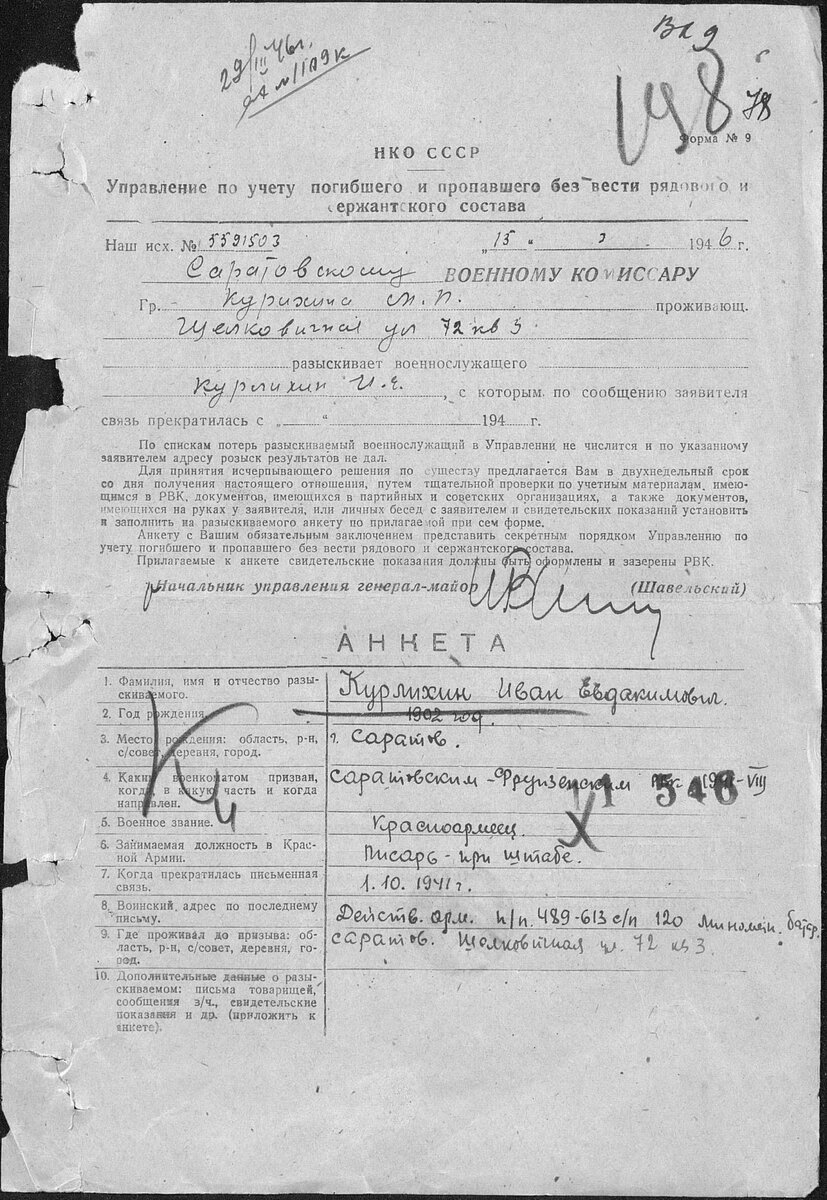 29/III 46г.
Вх 9
198
78
Форма № 9
НКО СССР
Управление по учету погибшего и пропавшего без вести рядового и
сержантского состава
Наш исх. № 5591503 „15 “ 3 - 1946 г.
Саратовскому ВОЕННОМУ КОМИССАРУ
Гр. Курихина М.П. проживающ.
Щелковичная ул 72 кв 3
разыскивает военнослужащего
Курлихин И.Е. , с которым по сообщению заявителя
связь прекратилась с „ “ 194 г.
По спискам потерь разыскиваемый военнослужащий в Управлении не числится и по указанному
заявителем адресу розыск результатов не дал.
Для принятия исчерпывающего решения по существу предлагается Вам в двухнедельный срок
со дня получения настоящего отношения, путем тщательной проверки по учетным материалам, имею-
щимся в РВК, документов, имеющихся в партийных и советских организациях, а также документов,
имеющихся на руках у заявителя, или личных бесед с заявителем и свидетельских показаний установить
и заполнить на разыскиваемого анкету по прилагаемой при сем форме.
Анкету с Вашим обязательным заключением представить секретным порядком Управлению по
учету погибшего и пропавшего без вести рядового и сержантского состава.
Прилагаемые к анкете свидетельские показания должны быть оформлены и заверены РВК.
Начальник управления генерал-майор (Шавельский)
АНКЕТА
1. Фамилия, имя и отчество разы-
скиваемого.
Курлихин Иван Евдакимович.
2. Год рождения.
1902 год.
3. Место рождения: область, р-н,
с/совет, деревня, город.
г. Саратов.
4. Каким военкоматом призван,
когда, в какую часть и когда
направлен.
Саратовским-Фрунзенским
VIII
546
5. Военное звание.
Красноармеец.
6. Занимаемая должность в Крас-
ной Армии.
Писарь - при штабе.
7. Когда прекратилась письменная
связь.
1.10.1941 г.
8. Воинский адрес по последнему
письму.
Действ. арм. п/п. 489-613 с/п 120 миномен. батар.
9. Где проживал до призыва: об-
ласть, р-н, с/совет, деревня, го-
род.
Саратов. Шолковичная ул. 72 кв 3.
10. Дополнительные данные о разы-
скиваемом: письма товарищей,
сообщения в/ч., свидетельские
показания и др. (приложить к
анкете).